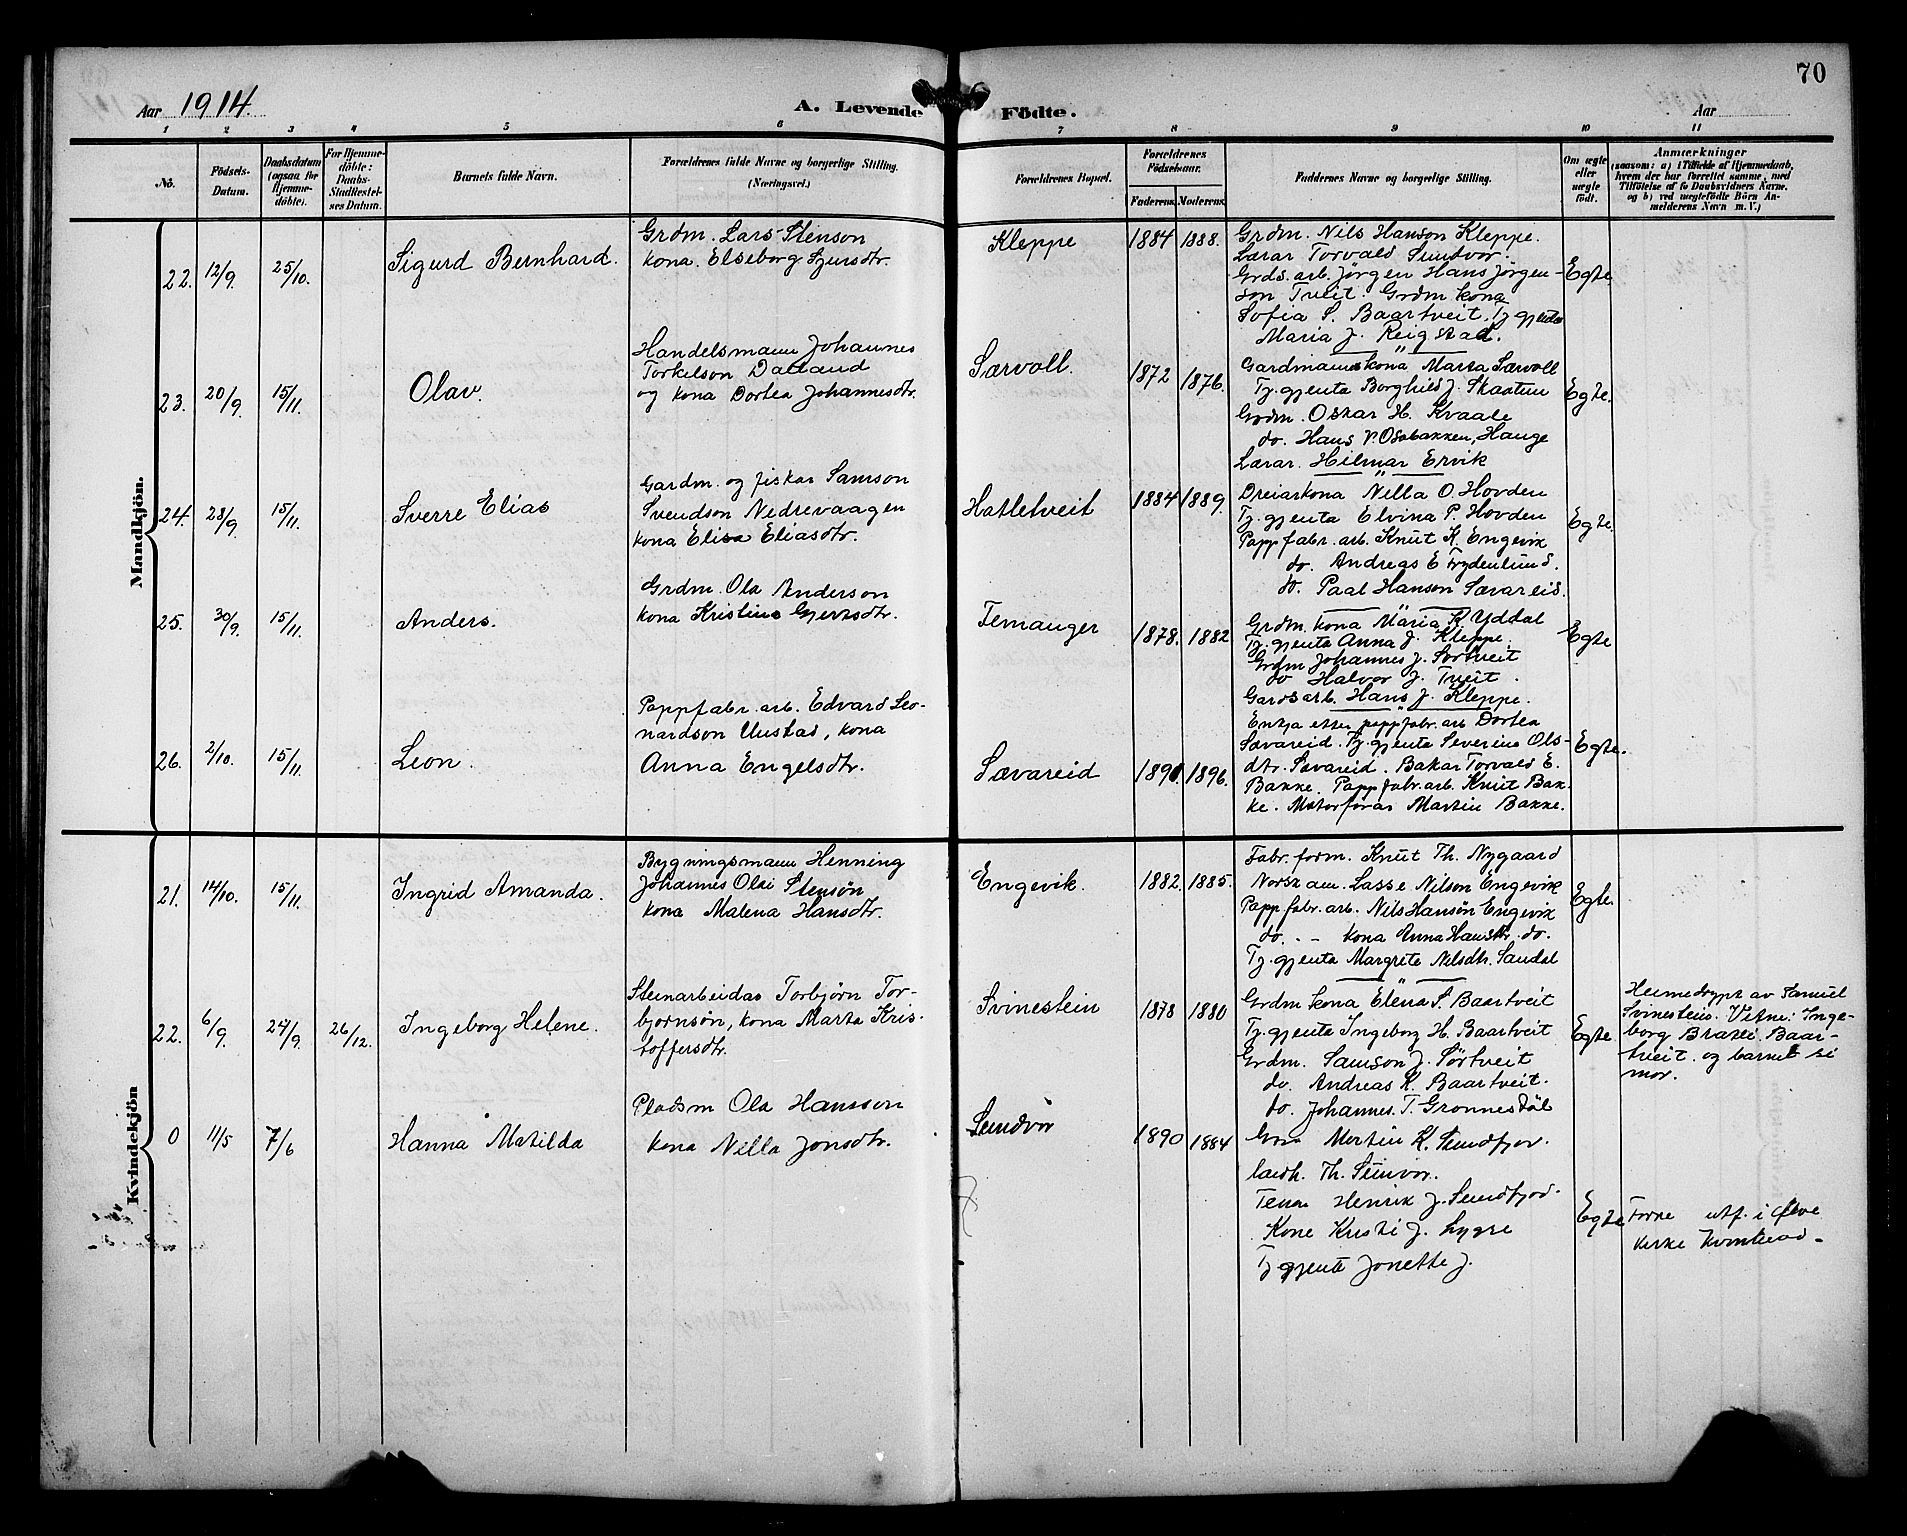 70
Aar 1914.
A. Levende Födte.
Aar
1 2 3 4 5 6 7 8 9 10 11
No.
Födsels-
Datum.
Daabsdatum
(ogsaa for
Hjemme-
döbte).
For Hjemme-
döbte:
Daabs-
Stadfæstel-
ses Datum.
Barnets fulde Navn.
Forældrenes fulde Navne og borgerlige Stilling.
(Næringsvei.)
Forældrenes Bopæl.
Forældrenes
Födselsaar.
Faderens. Moderens.
Faddernes Navne og borgerlige Stilling.
Om ægte
eller
uægte
födt.
Anmærkninger
(saasom: a) i Tilfælde af Hjemmedaab,
hvem der har forrettet samme, med
Tilföielse af to Daabsvidners Navne,
og b) ved uægtefödte Börn An-
melderens Navn m. V.)
Mandkjön.
22. 12/9. 25/10. Sigurd Bernhard.
Grdm. Lars Stenson
kona. Elseborg Sjursdtr.
Kleppe 1884 1888.
Grdm. Nils Hanson Kleppe.
Lærar Torvald Sundvor.
Grds. arb. Jørgen Hans Jørgen-
son Tveit. Grdm kona
Sofia S. Baartveit. Tj gjenta
Maria J. Reigstad.
Egte.
23. 20/9. 15/11. Olav.
Handelsmann Johannes
Torkelson Dalland
og kona Dortea Johannesdtr.
Særvoll. 1872 1876.
Gardmannskona Marta Særvoll
Tj. gjenta Borghild J. Skaatun
Grdm. Oskar H. Kvaale
do. Hans V. Osabakken, Hauge
Lærar. Hilmar Ervik
Egte.
24. 28/9. 15/11. Sverre Elias
Gardm. og fiskar Samson
Svendson Nedrevaagen
kona Elisa Eliasdtr.
Hatletveit 1884 1889.
Dreiarkona Nella O. Hovden
Tj. gjenta Elvina P. Hovden
Papp fabr. arb. Knut K. Engevik
do. Andreas E Frydenlund.
do. Paal Hanson Sævareid.
Egte.
25. 30/9. 15/11. Anders.
Grdm. Ola Anderson
kona Kristina Gjertsdtr.
Femanger 1878. 1882
Grdm. kona Maria K. Yddal
Tj. gjenta Anna J. Kleppe.
Grdm Johannes J. Sørtveit
do Halvor J. Tveit.
Gardsarb. Hans J. Kleppe.
Egte
26. 2/10. 15/11. Leon.
Pappfabr. arb. Edvard Leo-
nardson Unstad, kona
Anna Engelsdtr.
Sævareid 1896.
Enkja etter pappfabr. arb Dortea
Sævareid. Tj. gjenta Severina Ols-
dtr. Sævareid. Bakar Torvald E.
Bakke. Papp fabr. arb. Knut Bak-
ke. Motorførar Martin Bakke.
Egte.
Kvindekjön
21. 14/10. 15/11. Ingrid Amanda.
Bygningsmann Henning
Johannes Olai Stensøn,
kona Malena Hansdtr.
Engevik. 1882. 1885.
Fabr. form. Knut Th. Nygaard
Norsk am. Lasse Nilson Engevik
Papp fabr. arb. Nils Hansøn Engevik
do. - - kona Anna Hansdtr. do.
Tj. gjenta Margrete Nilsdtr. Sandal
Egte.
22. 6/9. 27/9. 26/12. Ingeborg Helene.
Steinarbeidar Torbjørn Tor-
bjørnsøn, kona Marta Kris-
toffersdtr.
Svinestein 1878 1880
Grdm kona Elena S. Baartveit
Tj. gjenta Ingeborg H. Baartveit
Grdm. Samson J. Sørtveit
do. Andreas K. Baartveit.
do. Johannes. T. Grønnestøl
Egte.
Heimedøypt av Samuel
Svinestein. Vitne: Inge-
borg Baar-
tveit. og barnet si
mor.
0 11/5 7/6 Hanna Matilda
Pladsm Ola Hansson
kona Nilla Jonsdtr.
Sundvor 1890 1884
Martin K. Sundfjor.
Th. Sunvor.
Henrik J. Sundfjord.
Kone Kristi J. Lygre
Tj gjente Jonette J.
Egte
utf. i Ølve
kirke